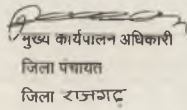 मुख्य कार्यपालन अधिकारी
जिला पंचायत
जिला राजगढ़